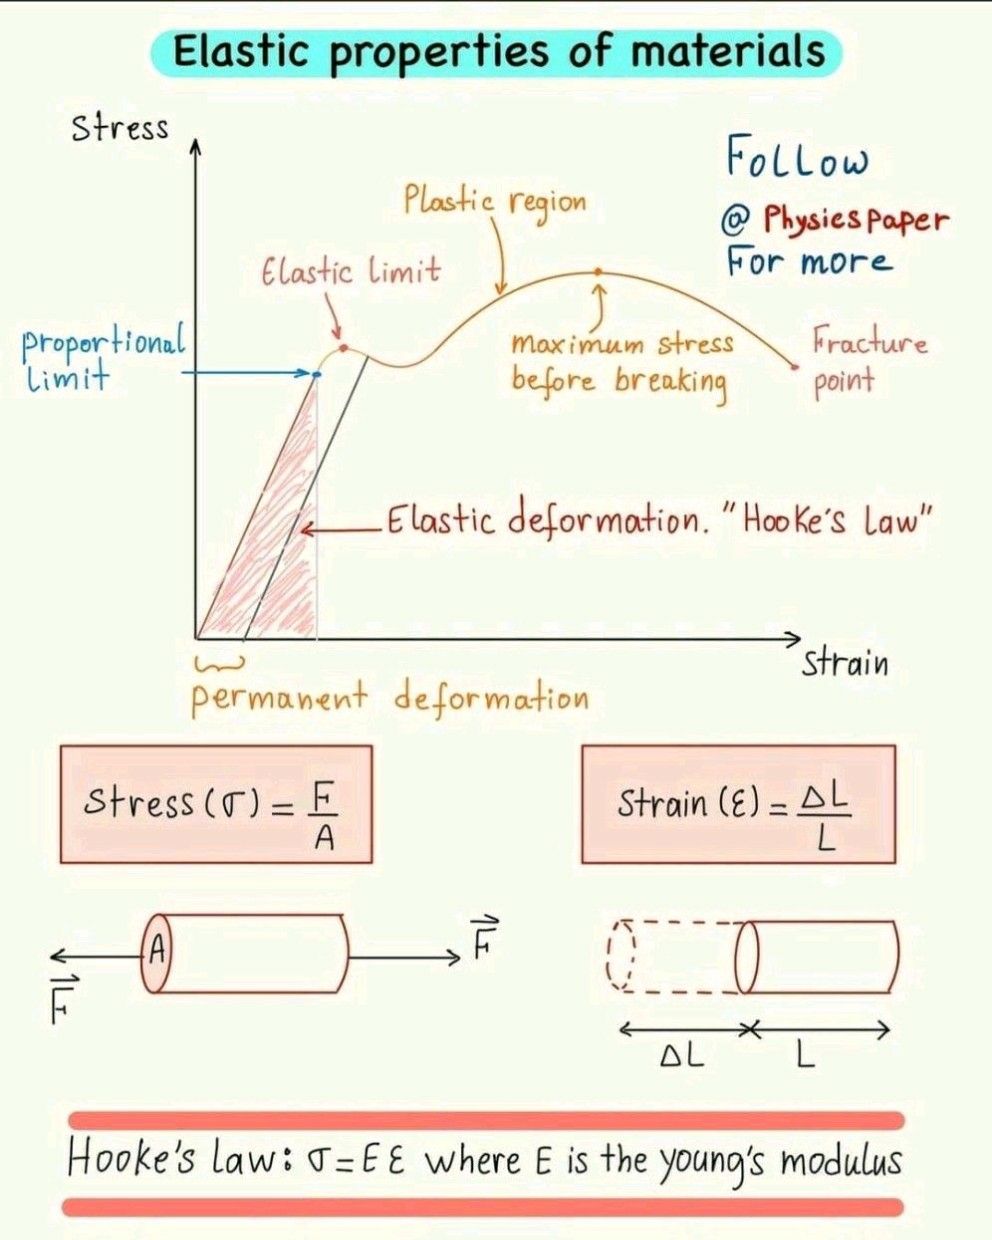 Elastic properties of materials
Stress
Follow
@ PhysiesPaper
For more
Plastic region
Elastic limit
proportional
limit
maximum stress
before breaking
Fracture
point
Elastic deformation. "Hooke's Law"
strain
permanent deformation
Stress (σ) = F/A
Strain (ε) = ΔL/L
A
F⃗
F⃗
ΔL
L
Hooke's law: σ=Eε where E is the young's modulus